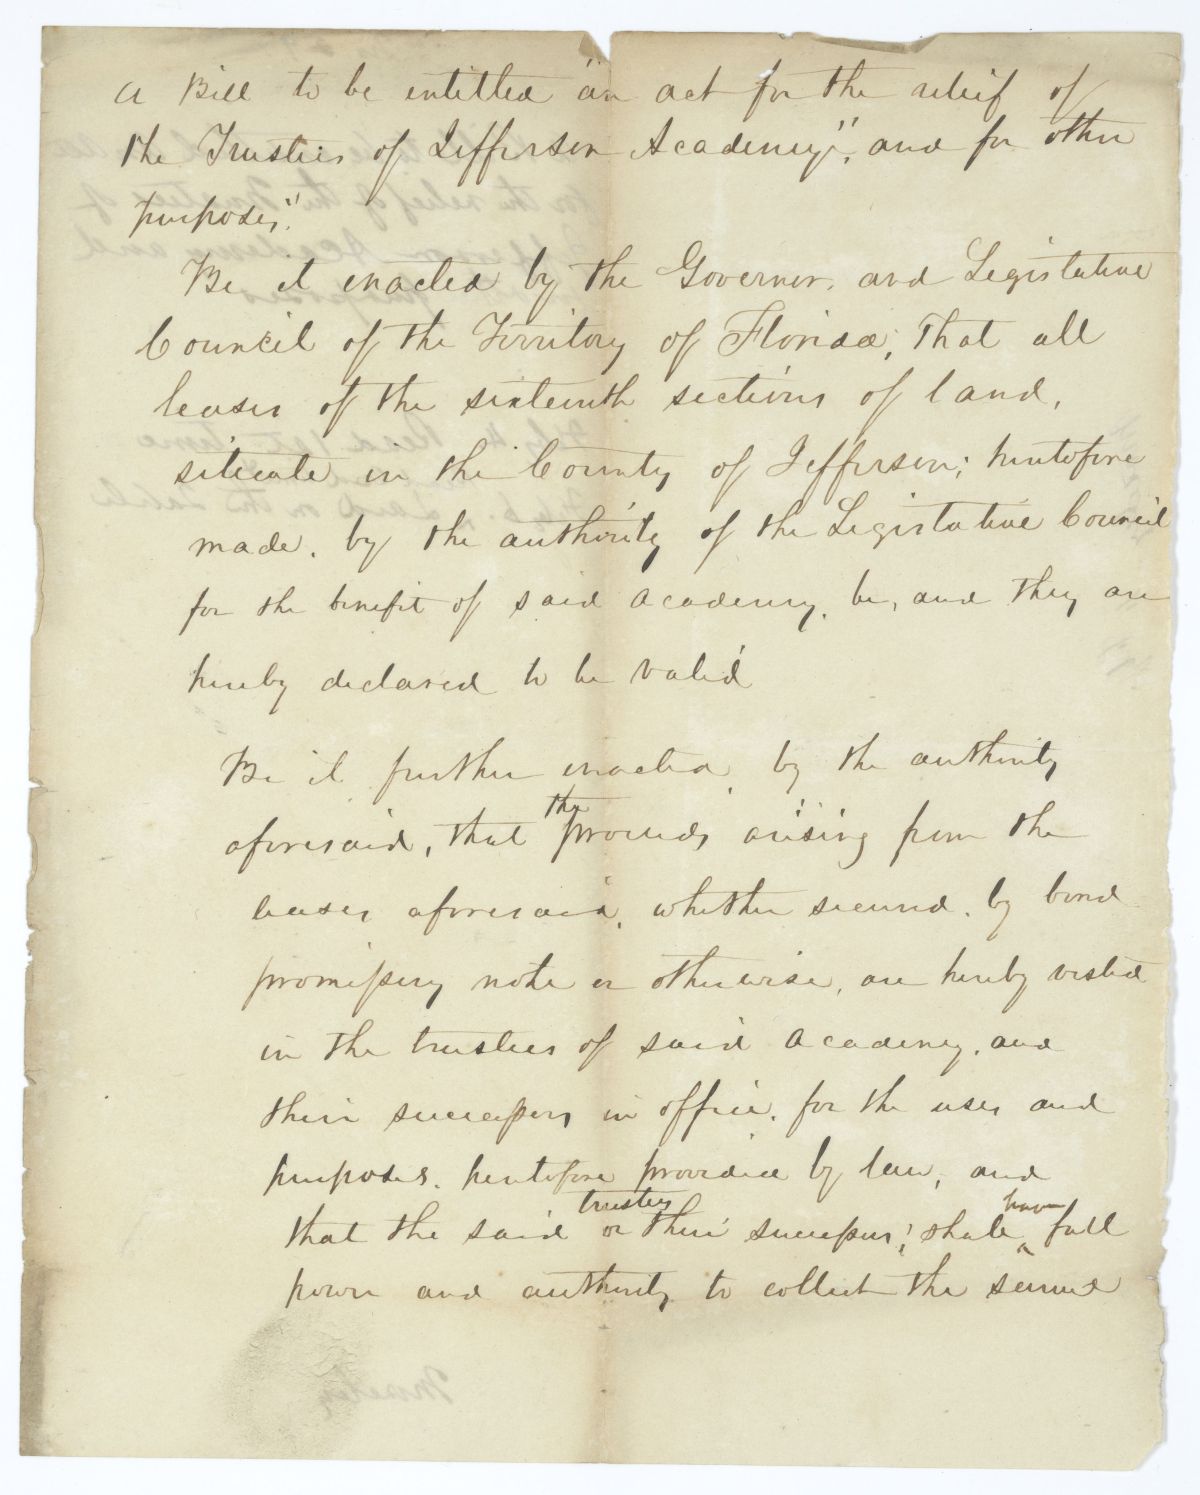 A Bill to be entitled "an act for the relief of
the Trustees of Jefferson Academy", and for other
purposes".
Be it enacted by the Governor, and Legislative
Council of the Territory of Florida, That all
leases of the sixteenth sections of land,
situate in the County of Jefferson; heretofore
made, by the authority of the Legislative Council
for the benefit of said academy, be, and they are
hereby declared to be valid
Be it further enacted, by the authority
aforesaid, that the proceeds arising from the
leases aforesaid, whether secured, by bond
promissory note or otherwise, are hereby vested
in the trustees of said academy, and
their successors in office, for the uses and
purposes, heretofore provided by law, and
that the said trustees or their successors, shall have full
power and authority to collect the same